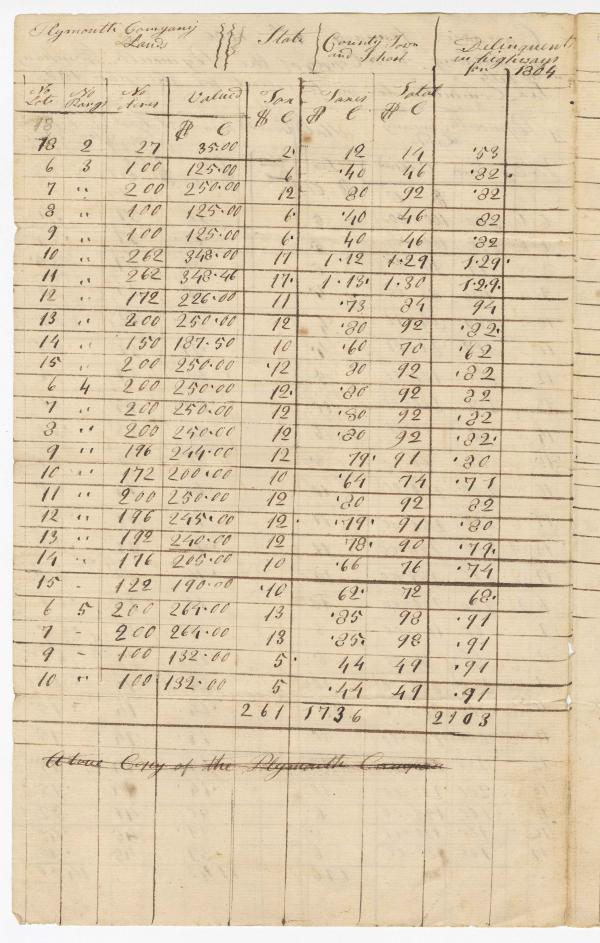 Plymouth Company State County Town Delinquent
Land and School in highways
for 1804
No No No Valued Tax Taxes Total
Lots Rang Acres $ C $ C $ C
18
$ C
18 2 27 35.00 2. 12 14 .53
6 3 100 125.00 6 .40 46 .82.
7 " 200 250.00 12 .80 92 .82
8 " 100 125.00 6. .40 46 82
9 " 100 125.00 6. 40 46 .82
10 " 262 348.00 17 1.12 1.29 1.29.
11 " 262 348.46 17. 1.13. 1.30 1.29.
12 " 172 226.00 11 .73 84 94
13 " 200 250.00 12 .80 92 .82.
14 " 150 187.50 10 .60 70 .62
15 " 200 250.00 .12 80 92 .82
6 4 200 250.00 12. .80 92 82
7 " 200 250.00 12 .80 92 .82
8 " 200 250.00 12 .80 92 .82.
9 " 196 244.00 12 79. 91 .80
10 " 172 200.00 10 .64 74 .71
11 " 200 250.00 12 .80 92 82
12 " 196 245.00 12. .79. 91 .80
13 " 192 240.00 12 78. 90 .79.
14 " 176 205.00 10 .66 76 .74
15 - 122 190.00 .10 62. 72 68.
6 5 200 264.00 13 .85 98 .91
7 - 200 264.00 13 .85. 98 .91
9 - 100 132.00 5. 44 49 .91
10 " 100 132.00 5 .44 49 .91
261 1736 2103
A true Copy of the Plymouth Compan